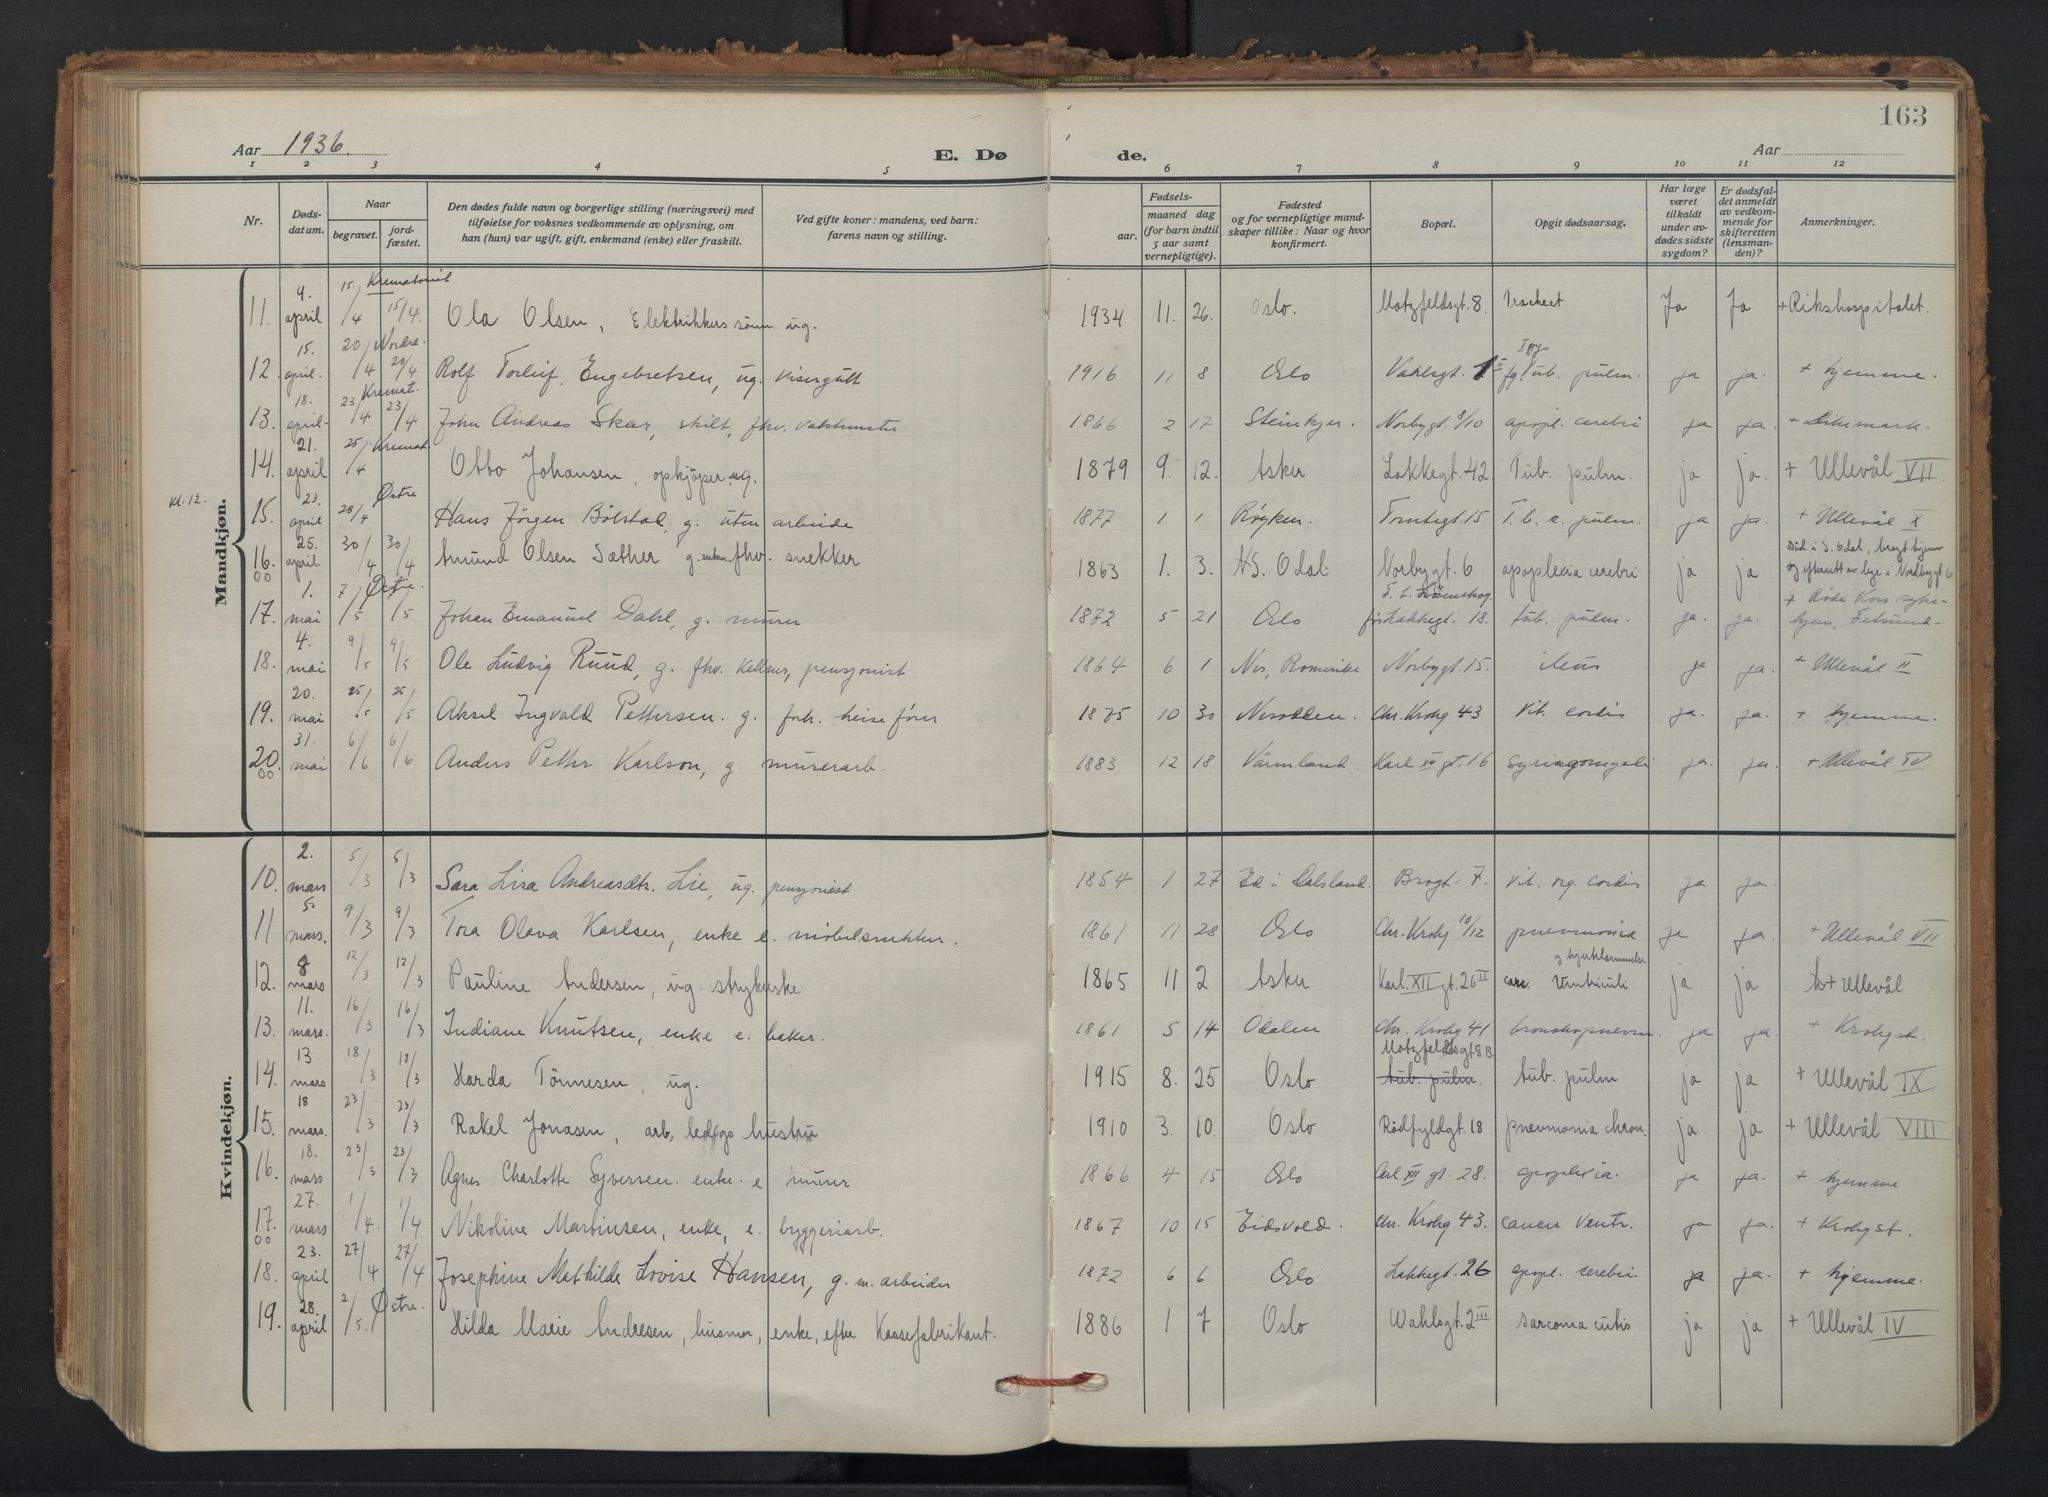 163
Aar 1936. E. Dø de. Aar
1 2 3 4 5 6 7 8 9 10 11 12
Nr.
Døds-
datum.
Naar
begravet.
jord-
fæstet.
Den dødes fulde navn og borgerlige stilling (næringsvei) med
tilføielse for voksnes vedkommende av oplysning, om
han (hun) var ugift, gift, enkemand (enke) eller fraskilt.
Ved gifte koner: mandens, ved barn:
farens navn og stilling.
Fødsels-
aar.
maaned dag
(for barn indtil
5 aar samt
vernepligtige).
Fødested
og for vernepligtige mand-
skaper tillike: Naar og hvor
konfirmert.
Bopæl.
Opgit dødsaarsag.
Har læge
været
tilkaldt
under av-
dødes sidste
sygdom?
Er dødsfal-
det anmeldt
av vedkom-
mende for
skifteretten
(lensman-
den)?
Anmerkninger.
Mandkjøn.
11. 9. april 15/4 Krematoriet 15/4. Ola Olsen, Elektrikkers sønn ug. 1934 11. 26. Oslo. Motzfeldsgt. 8. Tracheit Ja Ja + Rikshospitalet.
12. 15. april. 20/4 Nordre. 20/4 Rolf Torleif Engebretsen, ug. visergutt 1916 11 8 Oslo Vahlsgt. 1 tub. pulm. ja ja. + hjemme.
13. 18. april 23/4 Kremat. 23/4 John Andreas Skar, skilt, fhv. vaktmester 1866 2 17 Steinkjer. Norbygt. 8/10 apopl. cerebri ja ja. + Dikemark.
14. 21. april 25/4 Kremat. Otto Johansen, opkjøper ug. 1879 9. 12. Asker Lakkegt. 42. Tub. pulm. ja ja. + Ullevål VII
Kl. 12. 15. 23. april 28/4 Østre Hans Jörgen Bölstad, g. uten arbeide 1877 1 1 Røyken. Tomtegt. 15 T. b. c. pulm. ja ja. + Ullevål X
16. 00 25. april 30/4 30/4 Amund Olsen Sæther g. fhv. snekker 1863 1. 3. S. Odal Norbygt. 6 apoplexia cerebri ja ja Död i S. Odal, bragt hjem
17. 1. mai 7/5 Østre. /5 Johan Emanuel Dahl, g. murer 1872 5 21 Oslo Lakkegt. 18. tub. pulm. ja. ja. + Røde Kors syke-
hjem, Fetsund.
18. 4. mai 9/5 9/5 Ole Ludvig Ruud, g. fhv. kellner, pensjonist 1864 6 1 Nes, Romerike Norbygt. 15. ileus ja ja. + Ullevål II
19. 20. mai 25/5 25/5 Aksel Ingvald Pettersen. g. forh. heisefører 1875 10 30 Nesodden. Chr. Krohg 43 vit. cordis ja. ja. + hjemme.
20. 00 31. mai 6/6 6/6 Anders Petter Karlson, g. murerarb. 1883 12 18 Värmland. Karl XII gt. 16 syringomyeli ja. ja. + Ullevål IV
Kvindekjøn.
10. 2. mars 5/3 5/3 Sara Lisa Andreasdtr. Lie, ug. pensjonist 1854 1 27 Ed i Dalsland. Brogt. 7. vit. org. cordis ja ja.
11 5 mars. 9/3 9/3 Tora Olava Karlsen, enke e. møbelsnekker. 1861 11 28 Oslo Chr. Krohg 10/12 pneumonia ja ja. + Ullevål VII
12. 8 mars 12/3 12/3 Pauline Andersen, ug. strykerske 1865 11 2 Asker Karl XII gt. 26 II canc. Ventriculi og hjertelammelse ja ja + Ullevål
13. 11. mars. 16/3 16/3 Indiane Knutsen, enke e. baker. 1861 5 14 Odalen Chr. Krohg 41 bronchopneum. ja ja. + Krohgst.
14. 13 mars 18/3 18/3 Harda Tönnesen, ug. 1915 8. 25 Oslo Motzfeldtsgt 8 B. tub. pulm. tub. pulm ja ja + Ullevål IX
15. 18 mars. 23/3 23/3 Rakel Jonasen, arb. ledigs hustru 1910 3. 10. Oslo Rødfyldgt. 18 pneumonia chron. ja ja + Ullevål VIII
16. 18. mars 23/3 23/3 Agnes Charlotte Syversen. enke. e murer 1866 4 15 Oslo Carl XII gt. 28. apoplexia. ja ja. + hjemme
17. 00 27. mars 1/4. 1/4 Nikoline Martinsen, enke, e. byggeriarb. 1867 10 15 Eidsvold. Chr. Krohg 43. cancer ventr. ja ja. + Krohgst.
18. 23. april 27/4 27/4 Josephine Mathilde Lovise Hansen, g. m. arbeider 1872 6 6 Oslo Lakkegt. 26 apopl. cerebri. ja ja. + hjemme.
19. 28. april 2/5. Østre. Hilda Marie Andresen, husmor, enke, efter Kassefabrikant. 1886 1 7 Oslo Wahlsgt. 2 III sarcoma cutis ja ja + Ullevål IV